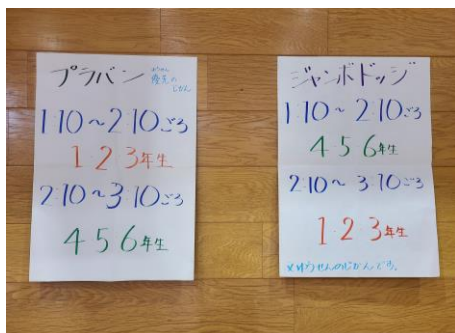 プラバン
ゆうせん
優先の
じかん
1:10～2:10ごろ
1 2 3年生
2:10～3:10ごろ
4 5 6年生
ジャンボドッジ
1:10～2:10ごろ
4 5 6年生
2:10～3:10ごろ
1 2 3年生
※ゆうせんのじかんです。